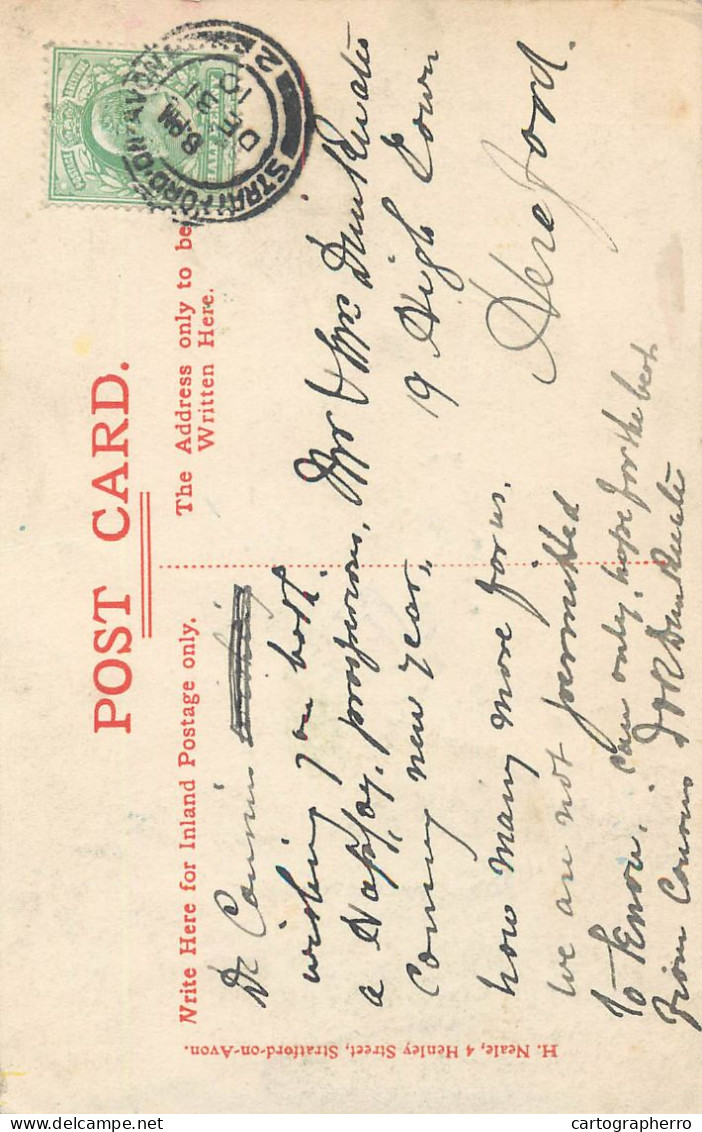 POST CARD.
Write Here for Inland Postage only.
The Address only to be
Written Here.
STRATFORD-ON-AVON
8.PM
DE 31
10
2
Dr Cousins
wishing you both
a Happy, prosperous,
coming new year,
how many more for us.
we are not permitted
to know. can only, hope for the best
from Cousins
Mr & Mrs
19 High Town
Hereford.
H. Neale, 4 Henley Street, Stratford-on-Avon.
cartographerro